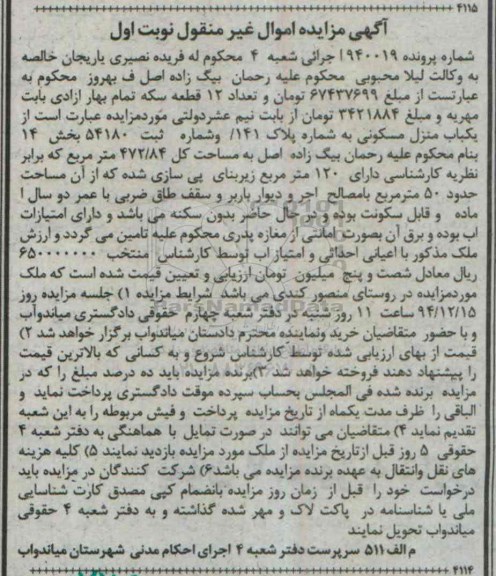 ۴۱۱۵
آگهی مزایده اموال غیر منقول نوبت اول
شماره پرونده ۹۴۰۰۱۹ اجرائی شعبه ۴ محکوم له فریده نصیری یاریجان خالصه
به وکالت لیلا محبوبی محکوم علیه رحمان بیگ زاده اصل ف بهروز محکوم به
عبارتست از مبلغ ۶۷۴۳۷۶۹۹ تومان و تعداد ۱۲ قطعه سکه تمام بهار ازادی بابت
مهریه و مبلغ ۳۴۲۱۸۸۴ تومان از بابت نیم عشردولتی موردمزایده عبارت است از
یکباب منزل مسکونی به شماره پلاک ۱۴۱/ وشماره ثبت ۵۴۱۸۰ بخش ۱۴
بنام محکوم علیه رحمان بیگ زاده اصل به مساحت کل ۴۷۲/۸۴ متر مربع که برابر
نظریه کارشناسی دارای ۱۲۰ متر مربع زیربنای پی سازی شده که از آن مساحت
حدود ۵۰ مترمربع بامصالح اجر و دیوار باربر و سقف طاق ضربی با عمر دو سال ا
ماده و قابل سکونت بوده و در حال حاضر بدون سکنه می باشد و دارای امتیازات
اب بوده و برق آن بصورت امانتی از مغازه پدری محکوم علیه تامین می گردد و ارزش
ملک مذکور با اعیانی احداثی و امتیاز اب توسط کارشناس منتخب ۶۵۰۰۰۰۰۰۰
ریال معادل شصت و پنج میلیون تومان ارزیابی و تعیین قیمت شده است که ملک
موردمزایده در روستای منصور کندی می باشد شرایط مزایده ۱) جلسه مزایده روز
۹۴/۱۲/۱۵ ساعت ۱۱ روز شنبه در دفتر شعبه چهارم حقوقی دادگستری میاندوآب
و با حضور متقاضیان خرید ونماینده محترم دادستان میاندواب برگزار خواهد شد ۲)
قیمت از بهای ارزیابی شده توسط کارشناس شروع و به کسانی که بالاترین قیمت
را پیشنهاد دهند فروخته خواهد شد ۳)برنده مزایده باید ده درصد مبلغ را که در
مزایده برنده شده فی المجلس بحساب سپرده موقت دادگستری پرداخت نماید و
الباقی را ظرف مدت یکماه از تاریخ مزایده پرداخت و فیش مربوطه را به این شعبه
تقدیم نماید ۴) متقاضیان می توانند در صورت تمایل با هماهنگی به دفتر شعبه ۴
حقوقی ۵ روز قبل ازتاریخ مزایده از ملک مورد مزایده بازدید نمایند ۵) کلیه هزینه
های نقل وانتقال به عهده برنده مزایده می باشد۶) شرکت کنندگان در مزایده باید
درخواست خود را قبل از زمان روز مزایده بانضمام کپی مصدق کارت شناسایی
ملی یا شناسنامه در پاکت لاک و مهر شده گذاشته و به دفتر شعبه ۴ حقوقی
میاندواب تحویل نمایند
م الف ۵۱۱ سرپرست دفتر شعبه ۴ اجرای احکام مدنی شهرستان میاندواب
۴۱۱۴